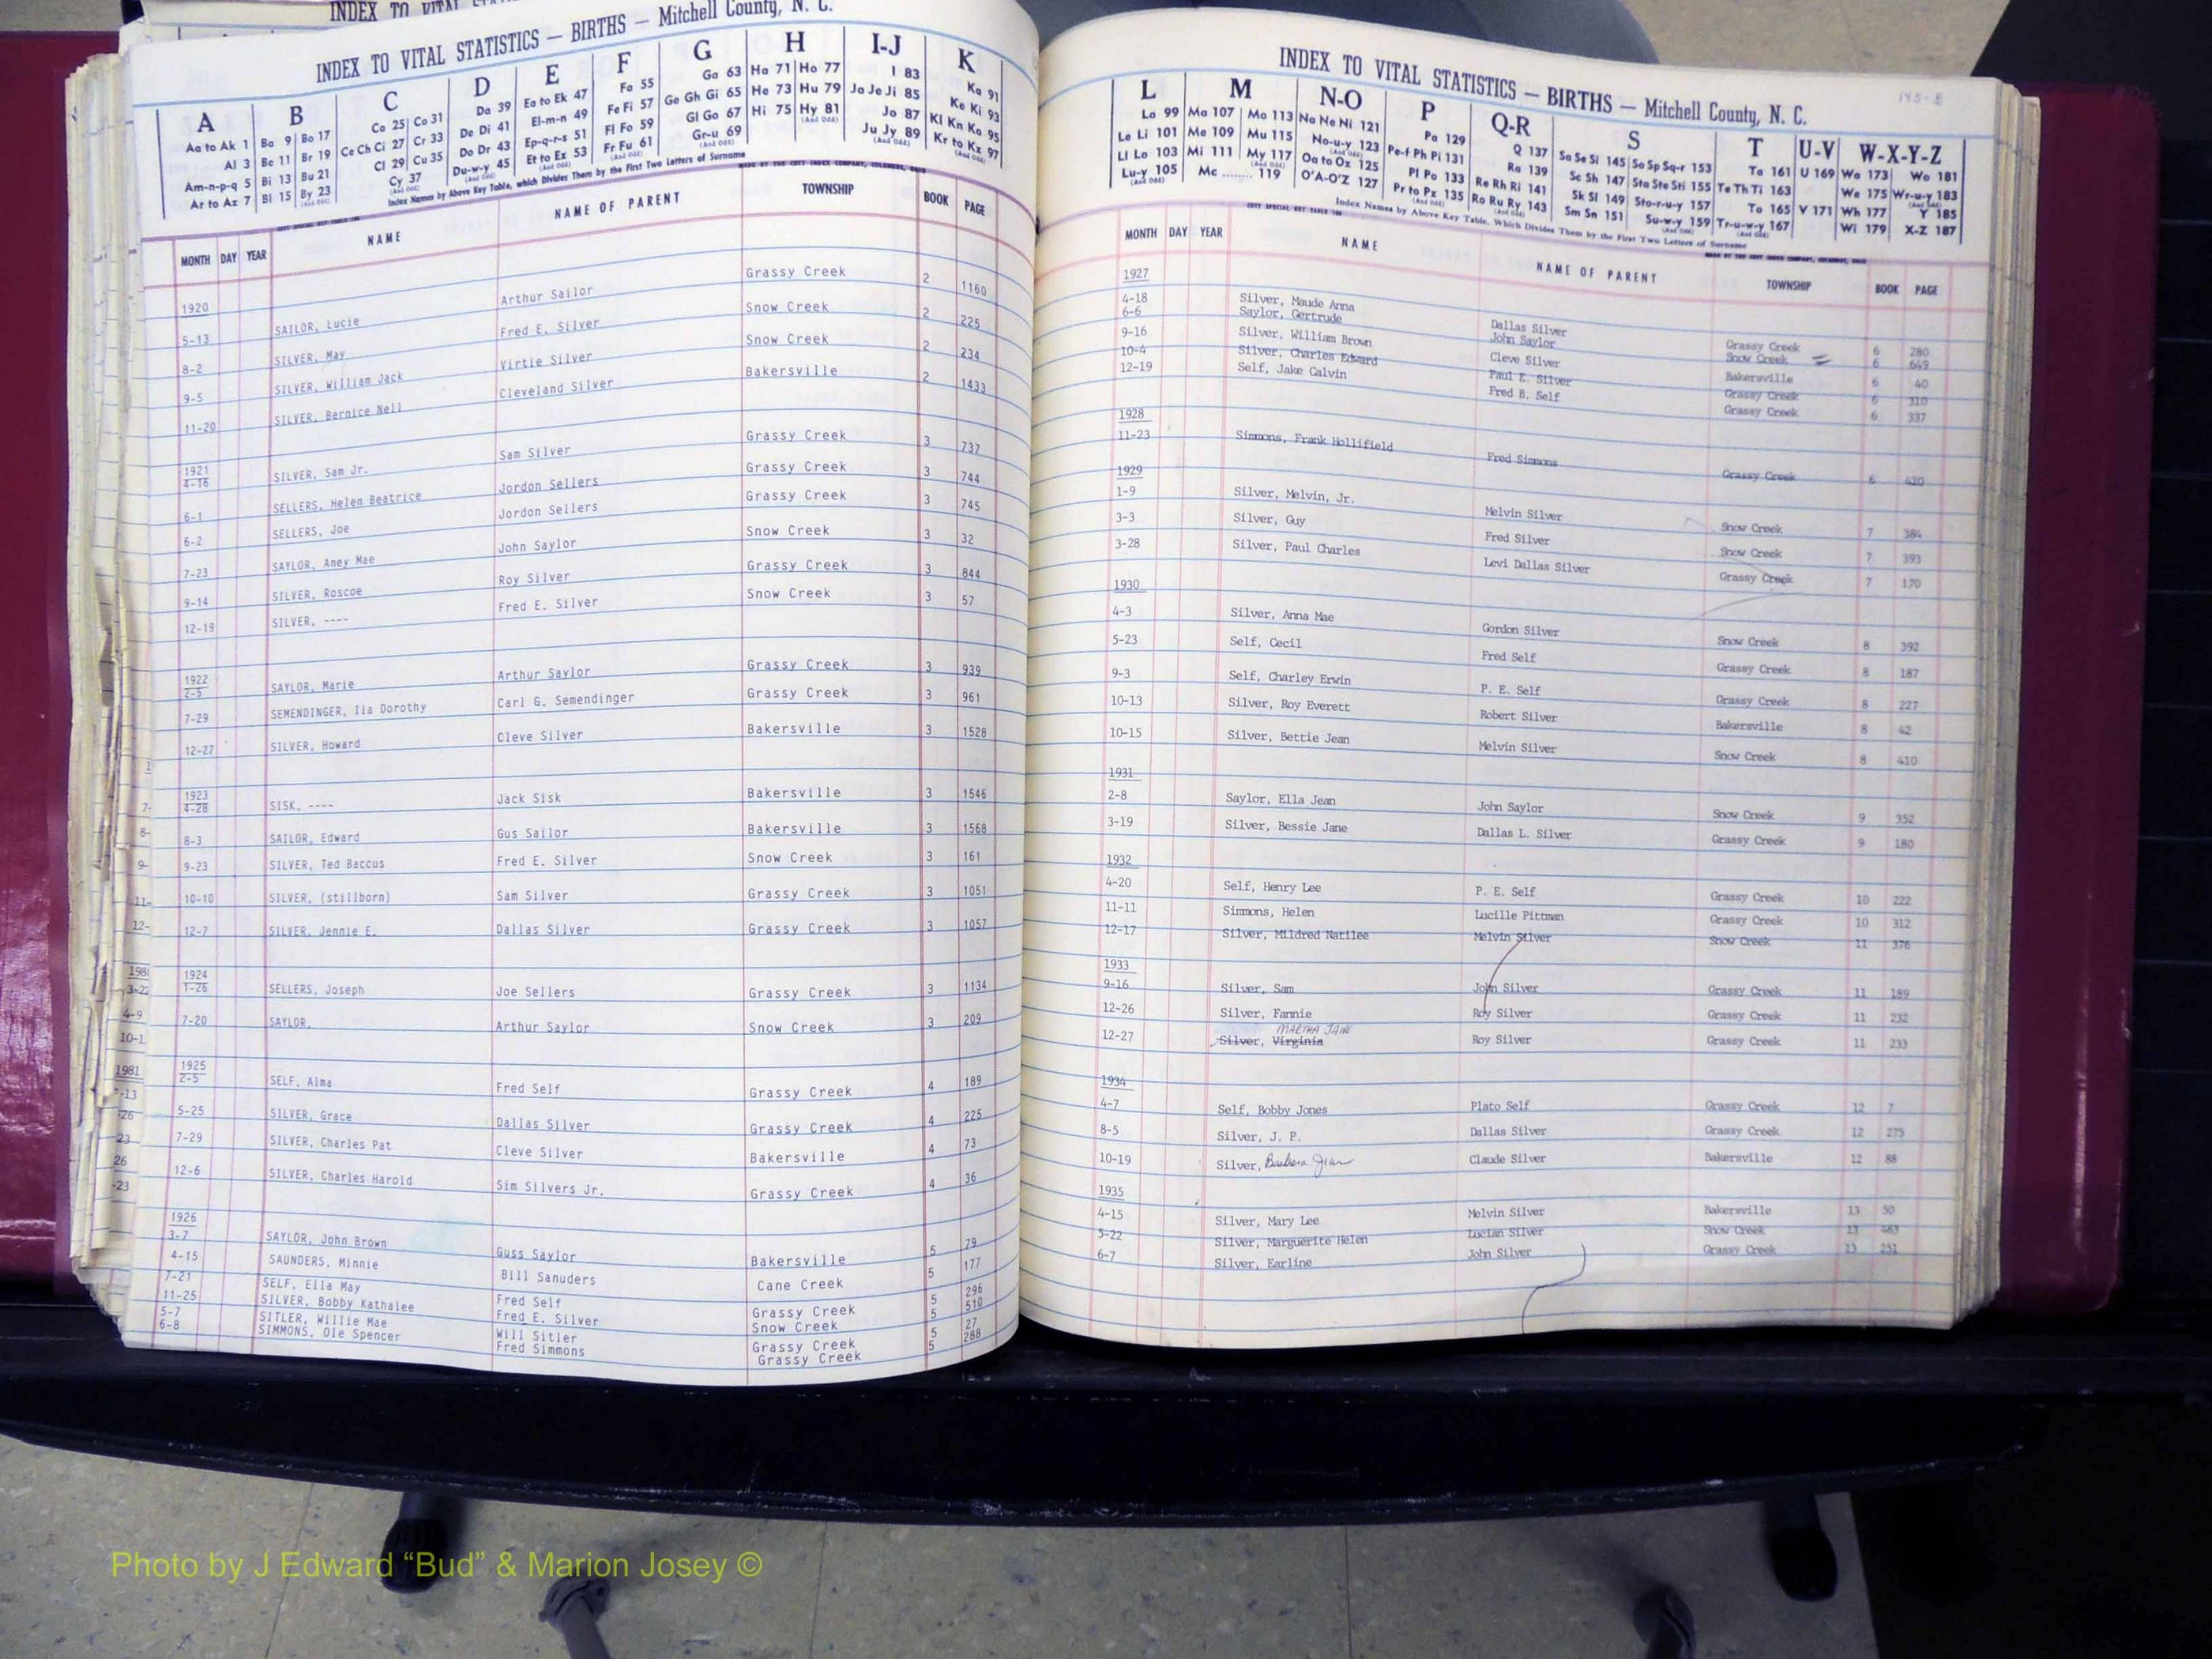 INDEX TO VITAL
INDEX TO VITAL STATISTICS — BIRTHS — Mitchell County, N. C.
A B C D E F G H I-J K
Aa to Ak 1 Al 3 Am-n-p-q 5 Ar to Az 7
Ba 9 Be 11 Bi 13 Bl 15 Bo 17 Br 19 Bu 21 By 23 (And Odd)
Ca 25 Ce Ch Ci 27 Cl 29 Co 31 Cr 33 Cu 35 Cy 37 (And Odd)
Da 39 De Di 41 Do Dr 43 Du-w-y 45 (And Odd)
Ea to Ek 47 El-m-n 49 Ep-q-r-s 51 Et to Ez 53
Fa 55 Fe Fi 57 Fl Fo 59 Fr Fu 61 (And Odd)
Ga 63 Ge Gh Gi 65 Gl Go 67 Gr-u 69 (And Odd)
Ha 71 He 73 Hi 75 Ho 77 Hu 79 Hy 81 (And Odd)
I 83 Ja Je Ji 85 Jo 87 Ju Jy 89 (And Odd)
Ka 91 Ke Ki 93 Kl Kn Ko 95 Kr to Kz 97 (And Odd)
Index Names by Above Key Table, which Divides Them by the First Two Letters of Surname
MONTH DAY YEAR NAME NAME OF PARENT TOWNSHIP BOOK PAGE
1920
5-13 SAILOR, Lucie Arthur Sailor Grassy Creek 2 1160
8-2 SILVER, May Fred E. Silver Snow Creek 2 225
9-5 SILVER, William Jack Virtie Silver Snow Creek 2 234
11-20 SILVER, Bernice Nell Cleveland Silver Bakersville 2 1433
1921
4-16 SILVER, Sam Jr. Sam Silver Grassy Creek 3 737
6-1 SELLERS, Helen Beatrice Jordon Sellers Grassy Creek 3 744
6-2 SELLERS, Joe Jordon Sellers Grassy Creek 3 745
7-23 SAYLOR, Aney Mae John Saylor Snow Creek 3 32
9-14 SILVER, Roscoe Roy Silver Grassy Creek 3 844
12-19 SILVER, ---- Fred E. Silver Snow Creek 3 57
1922
2-5 SAYLOR, Marie Arthur Saylor Grassy Creek 3 939
7-29 SEMENDINGER, Ila Dorothy Carl G. Semendinger Grassy Creek 3 961
12-27 SILVER, Howard Cleve Silver Bakersville 3 1528
1923
4-28 SISK, ---- Jack Sisk Bakersville 3 1546
8-3 SAILOR, Edward Gus Sailor Bakersville 3 1568
9-23 SILVER, Ted Baccus Fred E. Silver Snow Creek 3 161
10-10 SILVER, (stillborn) Sam Silver Grassy Creek 3 1051
12-7 SILVER, Jennie E. Dallas Silver Grassy Creek 3 1057
1924
1-26 SELLERS, Joseph Joe Sellers Grassy Creek 3 1134
7-20 SAYLOR, Arthur Saylor Snow Creek 3 209
1925
2-5 SELF, Alma Fred Self Grassy Creek 4 189
5-25 SILVER, Grace Dallas Silver Grassy Creek 4 225
7-29 SILVER, Charles Pat Cleve Silver Bakersville 4 73
12-6 SILVER, Charles Harold Sim Silvers Jr. Grassy Creek 4 36
1926
3-7 SAYLOR, John Brown Guss Saylor Bakersville 5 79
4-15 SAUNDERS, Minnie Bill Sanuders Cane Creek 5 177
7-21 SELF, Ella May Fred Self Grassy Creek 5 296
11-25 SILVER, Bobby Kathalee Fred E. Silver Snow Creek 5 510
5-7 SITLER, Willie Mae Will Sitler Grassy Creek 5 27
6-8 SIMMONS, Ole Spencer Fred Simmons Grassy Creek 5 288
INDEX TO VITAL STATISTICS — BIRTHS — Mitchell County, N. C.
L M N-O P Q-R S T U-V W-X-Y-Z
La 99 Le Li 101 Ll Lo 103 Lu-y 105 (And Odd)
Ma 107 Me 109 Mi 111 Mo 113 Mu 115 My 117 (And Odd) Mc ........ 119
Na Ne Ni 121 No-u-y 123 (And Odd) Oa to Oz 125 O'A-O'Z 127
Pa 129 Pe-f Ph Pi 131 Pl Po 133 Pr to Pz 135 (And Odd)
Q 137 Ra 139 Re Rh Ri 141 Ro Ru Ry 143 (And Odd)
Sa Se Si 145 Sc Sh 147 Sk Sl 149 Sm Sn 151 So Sp Sq-r 153 Sta Ste Sti 155 Sto-r-u-y 157 Su-w-y 159 (And Odd)
Ta 161 Te Th Ti 163 To 165 Tr-u-w-y 167 (And Odd)
U 169 V 171
Wa 173 We 175 Wh 177 Wi 179 Wo 181 Wr-u-y 183 (And Odd) Y 185 X-Z 187
Index Names by Above Key Table, Which Divides Them by the First Two Letters of Surname
MONTH DAY YEAR NAME NAME OF PARENT TOWNSHIP BOOK PAGE
1927
4-18 Silver, Maude Anna Dallas Silver Grassy Creek 6 280
6-6 Saylor, Gertrude John Saylor Snow Creek 6 649
9-16 Silver, William Brown Cleve Silver Bakersville 6 40
10-4 Silver, Charles Edward Paul E. Silver Grassy Creek 6 310
12-19 Self, Jake Calvin Fred B. Self Grassy Creek 6 337
1928
11-23 Simmons, Frank Hollifield Fred Simmons Grassy Creek 6 420
1929
1-9 Silver, Melvin, Jr. Melvin Silver Snow Creek 7 384
3-3 Silver, Guy Fred Silver Snow Creek 7 393
3-28 Silver, Paul Charles Levi Dallas Silver Grassy Creek 7 170
1930
4-3 Silver, Anna Mae Gordon Silver Snow Creek 8 392
5-23 Self, Cecil Fred Self Grassy Creek 8 187
9-3 Self, Charley Erwin P. E. Self Grassy Creek 8 227
10-13 Silver, Roy Everett Robert Silver Bakersville 8 42
10-15 Silver, Bettie Jean Melvin Silver Snow Creek 8 410
1931
2-8 Saylor, Ella Jean John Saylor Snow Creek 9 352
3-19 Silver, Bessie Jane Dallas L. Silver Grassy Creek 9 180
1932
4-20 Self, Henry Lee P. E. Self Grassy Creek 10 222
11-11 Simmons, Helen Lucille Pittman Grassy Creek 10 312
12-17 Silver, Mildred Natilee Melvin Silver Snow Creek 11 376
1933
9-16 Silver, Sam John Silver Grassy Creek 11 189
12-26 Silver, Fannie Roy Silver Grassy Creek 11 232
MARTHA JANE
12-27 Silver, Virginia Roy Silver Grassy Creek 11 233
1934
4-7 Self, Bobby Jones Plato Self Grassy Creek 12 7
8-5 Silver, J. P. Dallas Silver Grassy Creek 12 275
10-19 Silver, Barbara Jean Claude Silver Bakersville 12 88
1935
4-15 Silver, Mary Lee Melvin Silver Bakersville 13 50
5-22 Silver, Marguerite Helen Lucian Silver Snow Creek 13 463
6-7 Silver, Earline John Silver Grassy Creek 13 251
Photo by J Edward “Bud” & Marion Josey ©